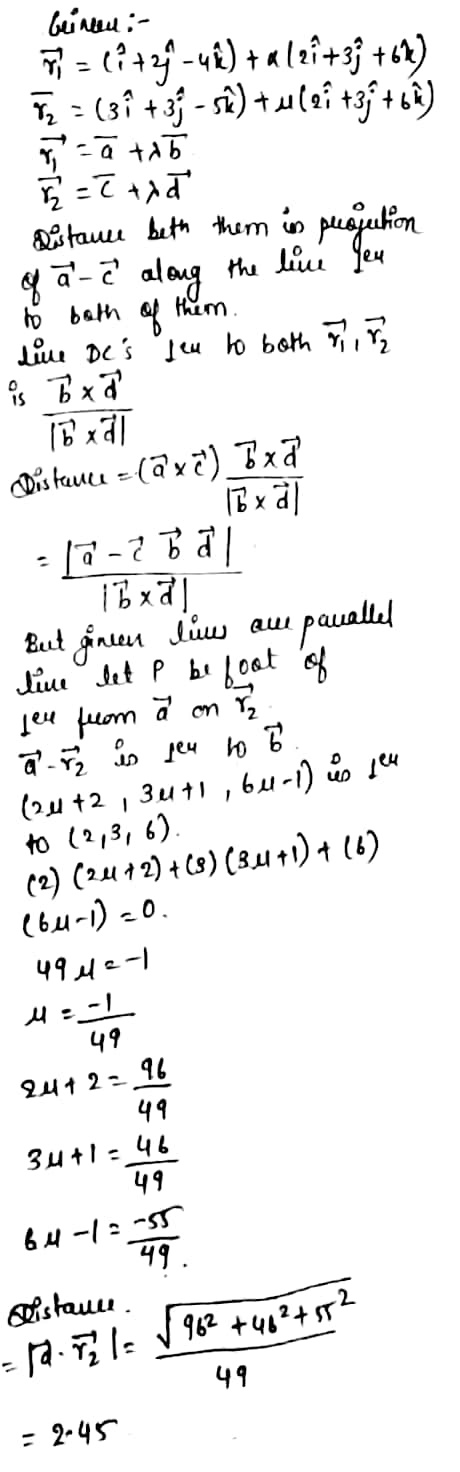 Given :-
r₁ = (î + 2ĵ - 4k̂) + α(2î + 3ĵ + 6k̂)
r₂ = (3î + 3ĵ - 5k̂) + μ(2î + 3ĵ + 6k̂)
r₁ = a + λb
r₂ = c + λd
Distance beth them is projection
of a - c along the line ⊥er
to both of them.
line DC's ⊥er to both r₁, r₂
is b × d / |b × d|
Distance = (a × c) b × d / |b × d|
= |a - c b d| / |b × d|
But given lines are parallel
line let P be foot of
⊥er from a on r₂
a - r₂ is ⊥er to b
(2μ + 2, 3μ + 1, 6μ - 1) is ⊥er
to (2, 3, 6).
(2) (2μ + 2) + (3) (3μ + 1) + (6)
(6μ - 1) = 0.
49μ = -1
μ = -1/49
2μ + 2 = 96/49
3μ + 1 = 46/49
6μ - 1 = -55/49.
Distance.
= |a · r₂| = √(96² + 46² + 55²) / 49
= 2.45